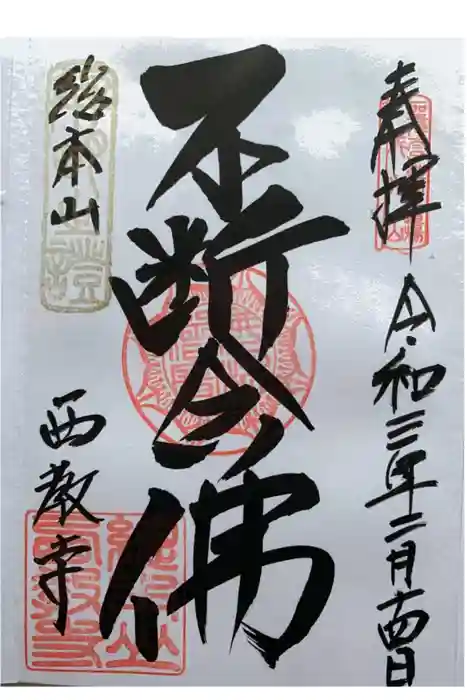 奉拝
令和三年二月十四日
不断念佛
総本山
西教寺